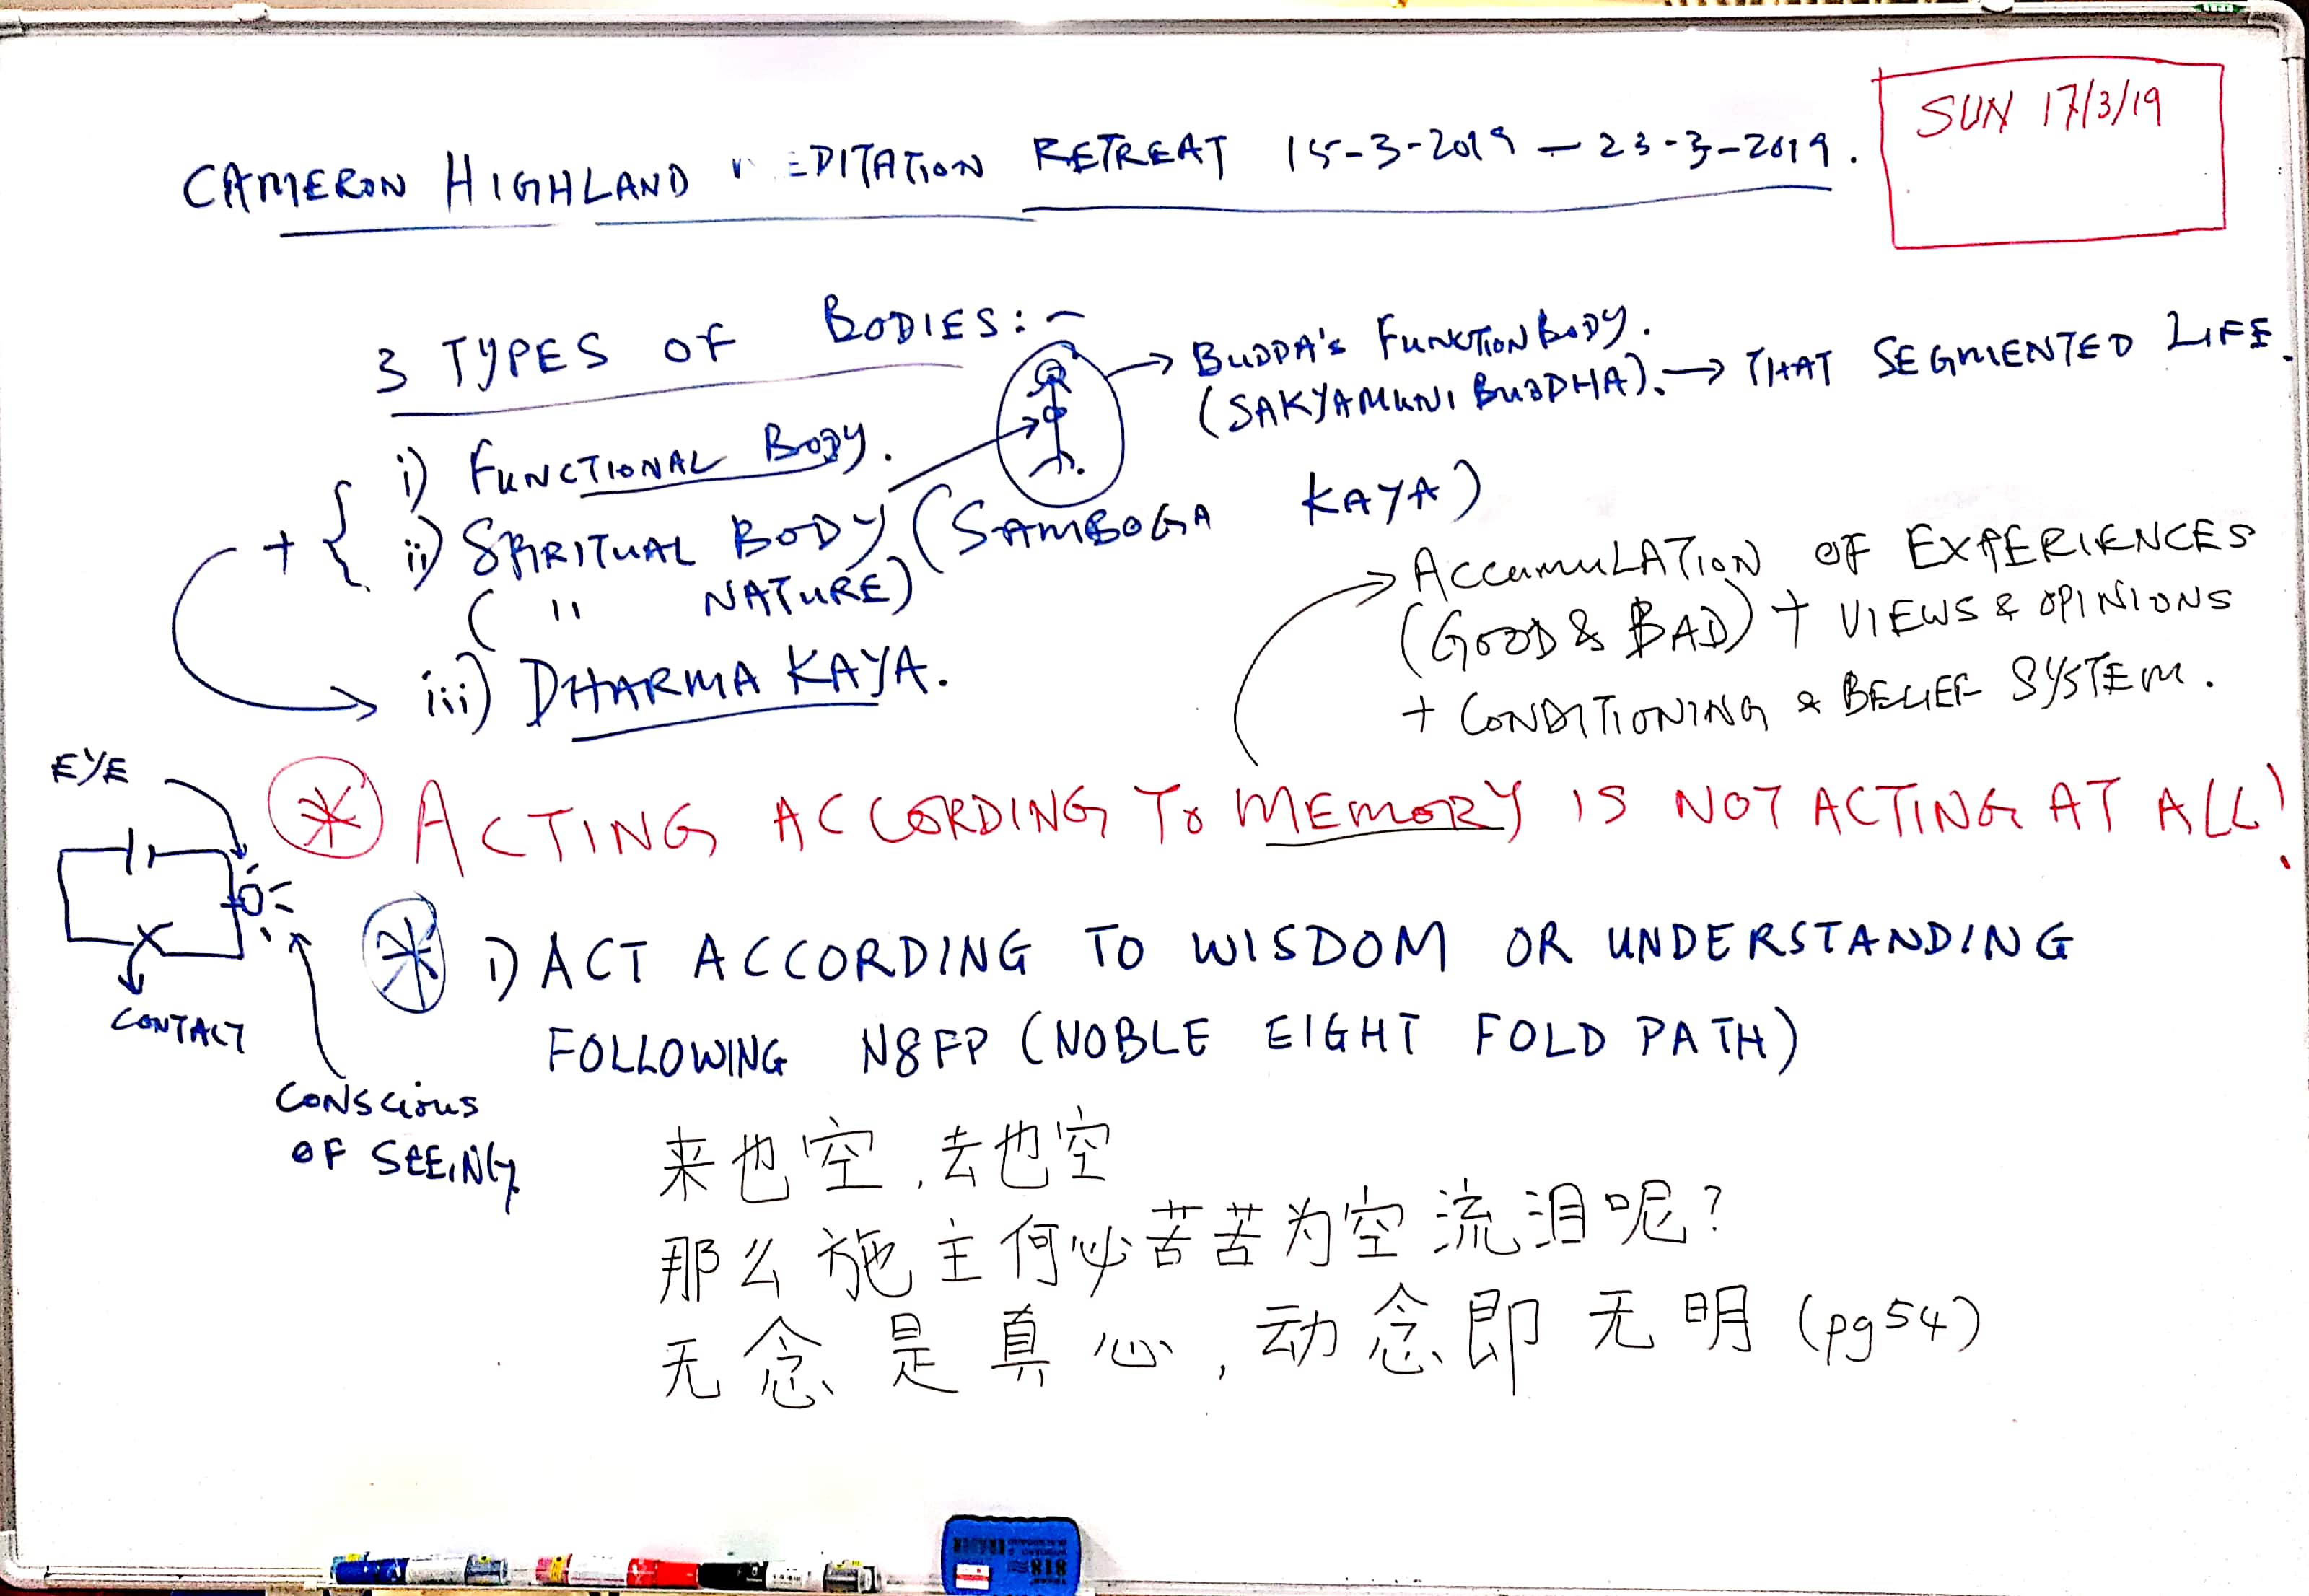 SUN 17/3/19
CAMERON HIGHLAND EDITATION RETREAT 15-3-2019 — 23-3-2019.
3 TYPES OF BODIES:-
→ BUDDA's FUNCTION BODY.
(SAKYAMUNI BUDDHA). → THAT SEGMENTED LIFE.
i) FUNCTIONAL BODY.
+ { ii) SPIRITUAL BODY (SAMBOGA KAYA)
( " NATURE)
iii) DHARMA KAYA.
→ ACCUMULATION OF EXPERIENCES
(GOOD & BAD) + VIEWS & OPINIONS
+ CONDITIONING & BELIEF SYSTEM.
EYE
* ACTING ACCORDING TO MEMORY IS NOT ACTING AT ALL!
* 1) ACT ACCORDING TO WISDOM OR UNDERSTANDING
FOLLOWING N8FP (NOBLE EIGHT FOLD PATH)
CONTACT
CONSCIOUS
OF SEEING
来也空,去也空
那么施主何必苦苦为空流泪呢?
无念是真心,动念即无明 (pg54)
818